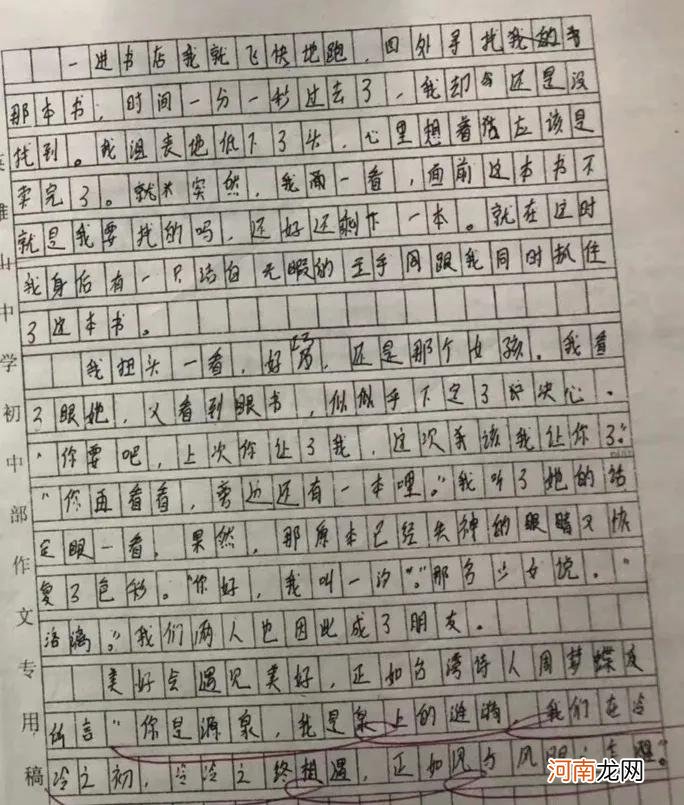 一进书店我就飞快地跑，四处寻找我的
那本书，时间一分一秒过去了，我却还是没
找到。我沮丧地低下了头，心里想着应该是
卖完了。就突然，我一看，面前这本书不
就是我要找的吗，还好还剩下一本。就在这时
我身后有一只洁白无暇的玉手同跟我同时抓住
了这本书。
我扭头一看，好巧，还是那个女孩。我看
了眼她，又看到眼书，似似乎下定了决心。
“你要吧，上次你让了我，这次该我让你了。”
“你再看看，旁边还有一本哩。”我听了她的话
定眼一看，果然，那原本已经失神的眼睛又恢
复了色彩。“你好，我叫一汐。”那名少女说。“
洛漓。”我们俩人也因此成了朋友。
美好会遇见美好，正如台湾诗人周梦蝶友
所言“你是源泉，我是泉上的涟漪 我们在冷
冷之初，冷冷之终相遇，正如风与风
英雄山中学初中部作文专用稿
河南龙网